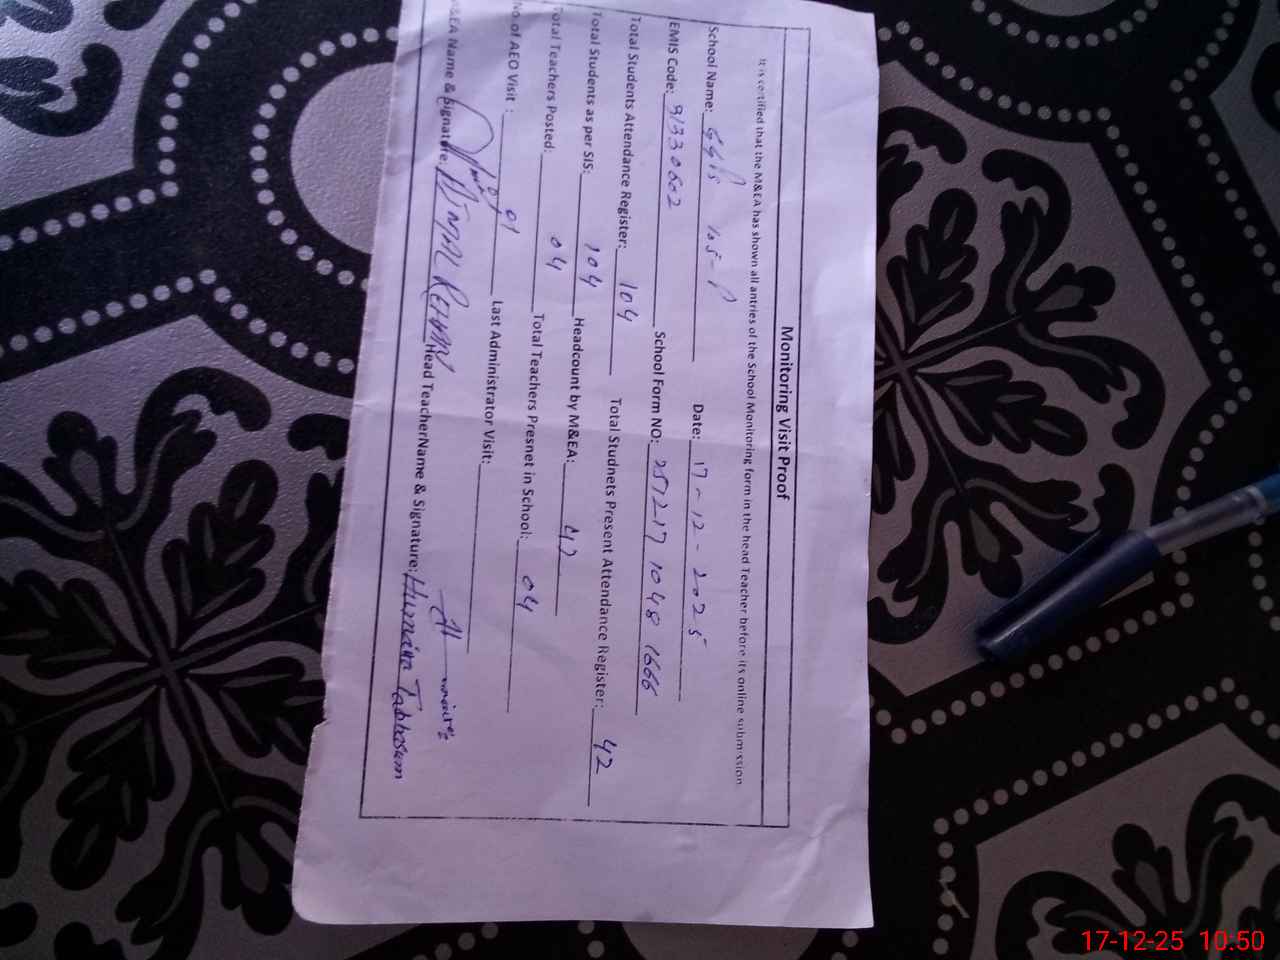 Monitoring Visit Proof
It is certified that the M&EA has shown all antries of the School Monitoring form in the head Teacher before its online submission
School Name: GGPS 105-P Date: 17-12-2025
EMIS Code: 31330602 School Form NO: 25121710481666
Total Students Attendance Register: 104 Total Studnets Present Attendance Register: 42
Total Students as per SIS: 104 Headcount by M&EA: 42
Total Teachers Posted: 04 Total Teachers Presnet in School: 04
No.of AEO Visit : 01 Last Administrator Visit:
M&EA Name & Signature: Head TeacherName & Signature: Humaira Tabbosum
17-12-25 10:50